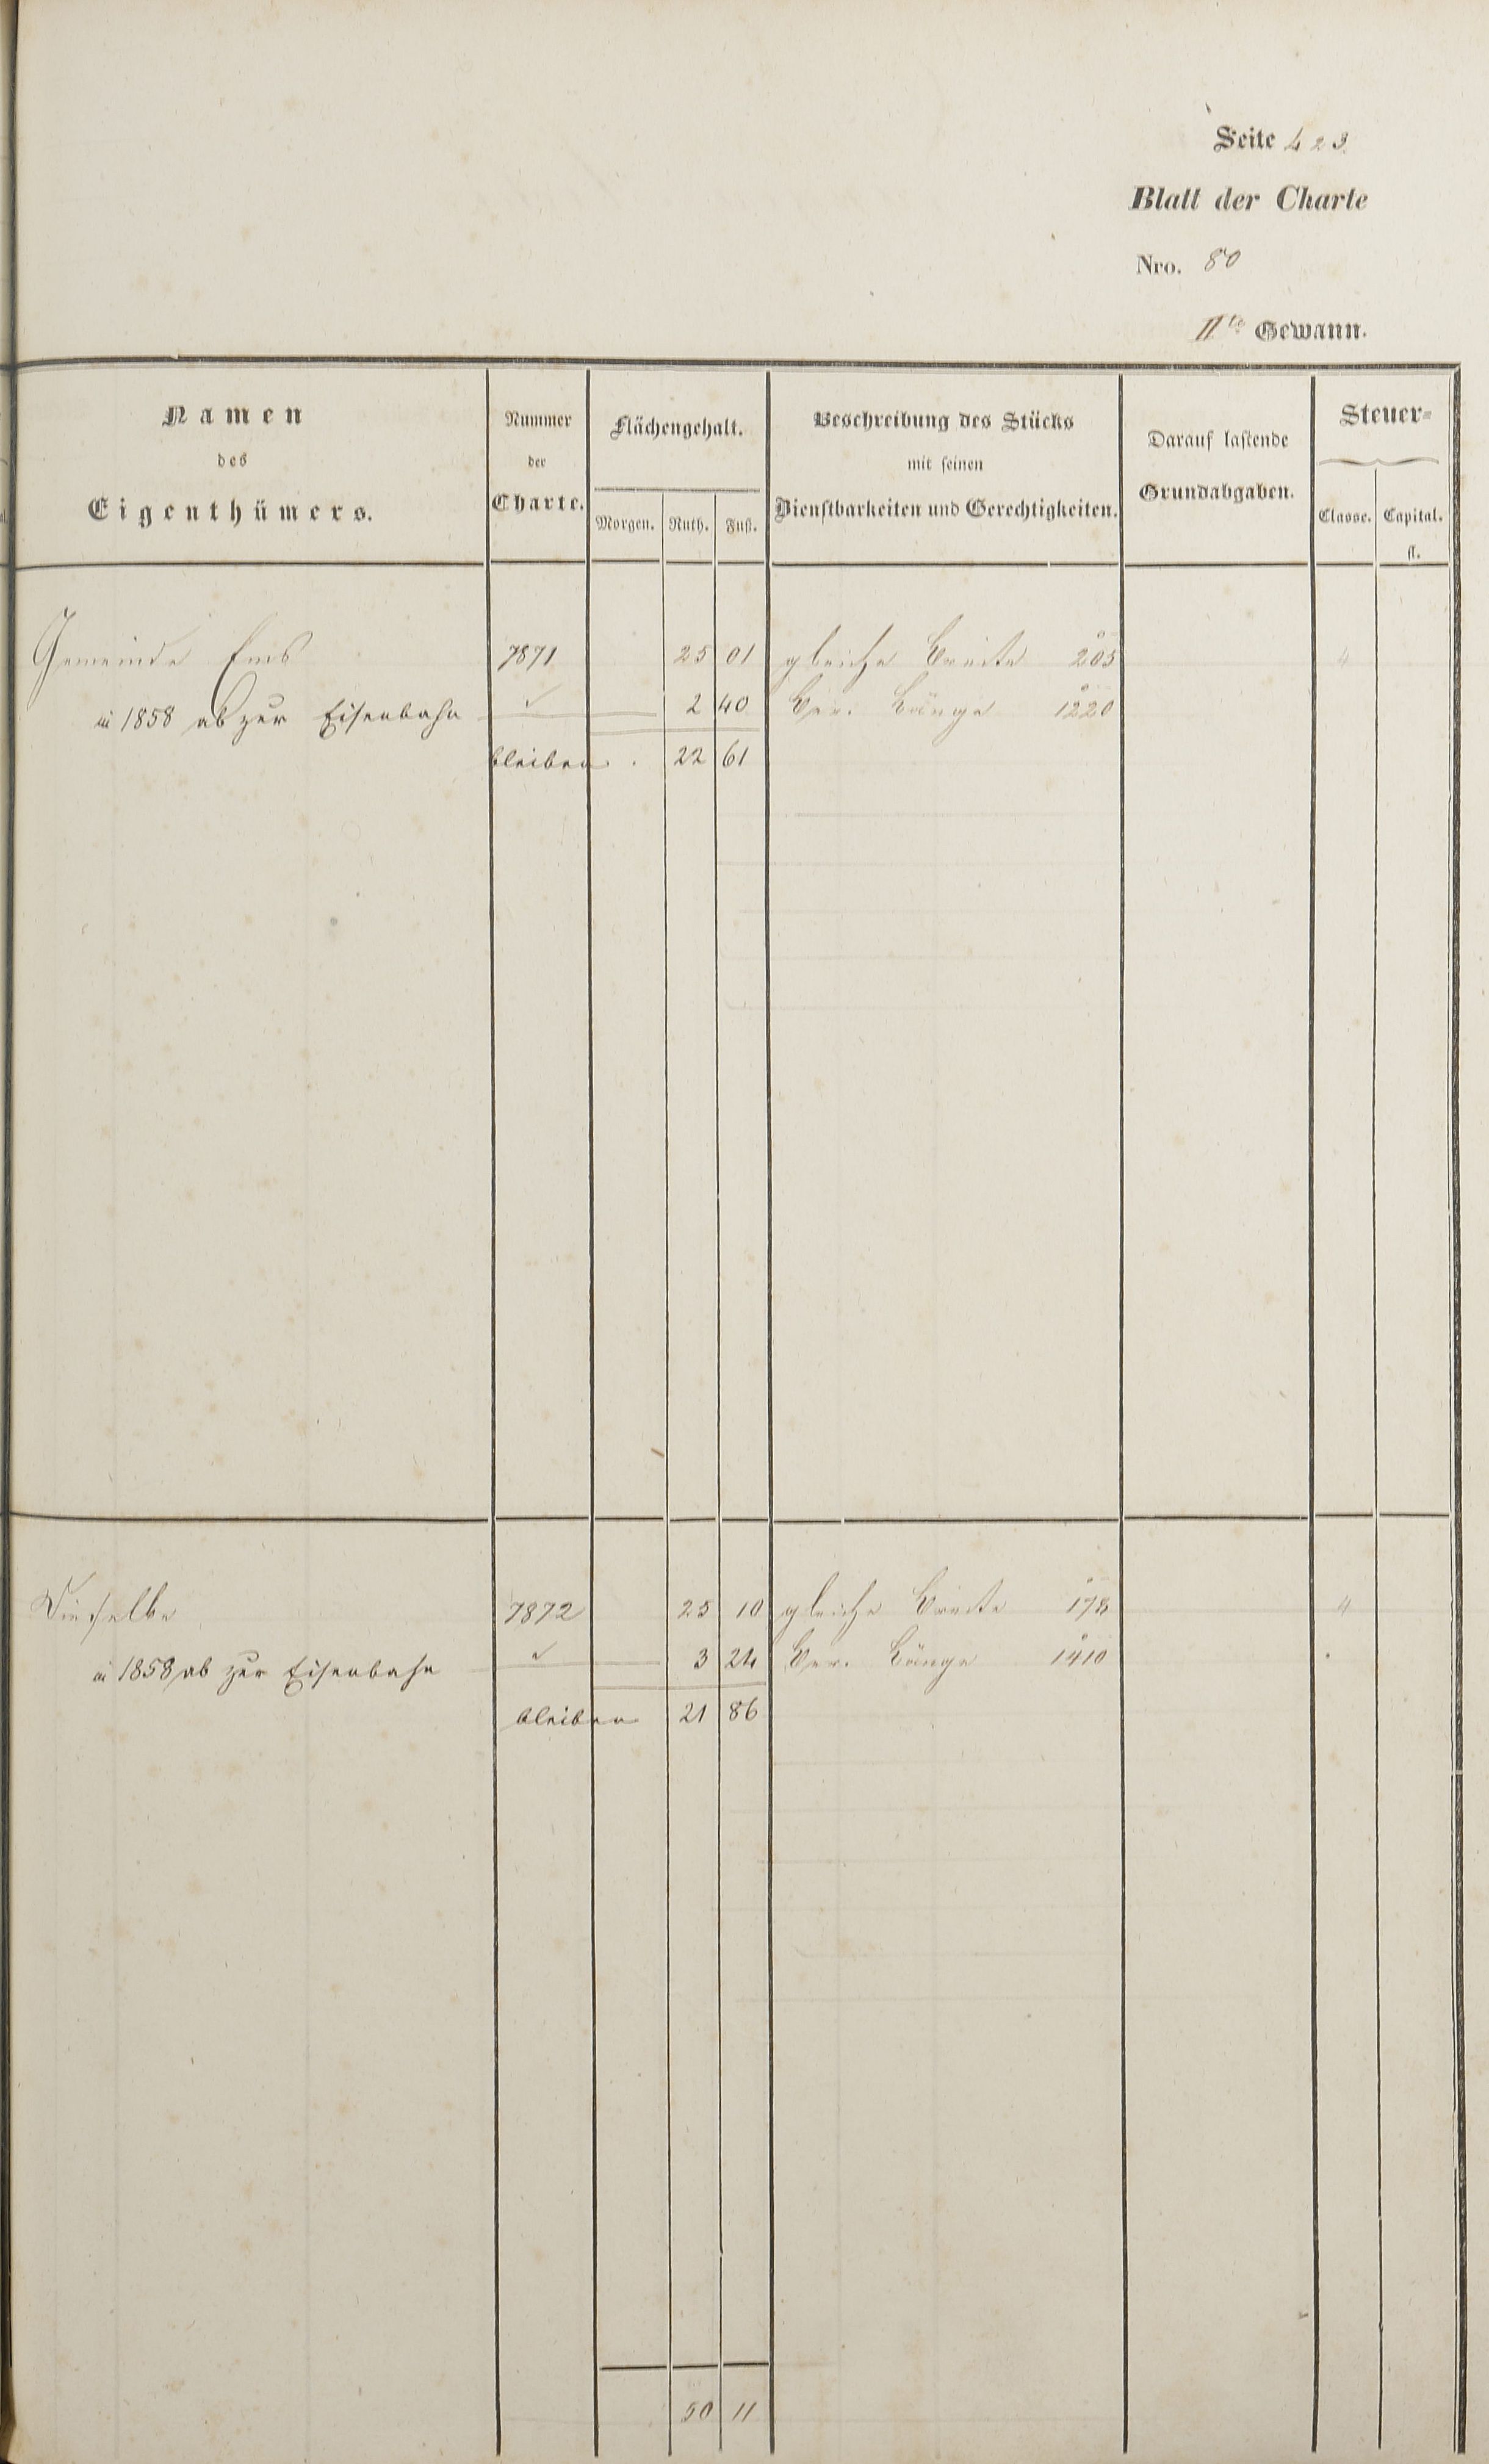 Seite 423.
Blatt der Charte
Nro. 80
II te Gewann.
Namen des Eigenthümers.
Nummer der Charte.
Flächengehalt.
Morgen. Ruth. Fuß.
Beschreibung des Stücks mit seinen Dienstbarkeiten und Gerechtigkeiten.
Darauf lastende Grundabgaben.
Steuer-
Classe. Capital. fl.
Gemeinde Ems 7871 25 01 gleiche Breite 205 4
in 1858 ab zur Eisenbahn 2 40 Ber. Länge 1220
bleiben . 22 61
Dieselbe 7872 25 10 gleiche Breite 178 4
in 1858 ab zur Eisenbahn 3 24 Ber. Länge 1410
bleiben 21 86
50 11